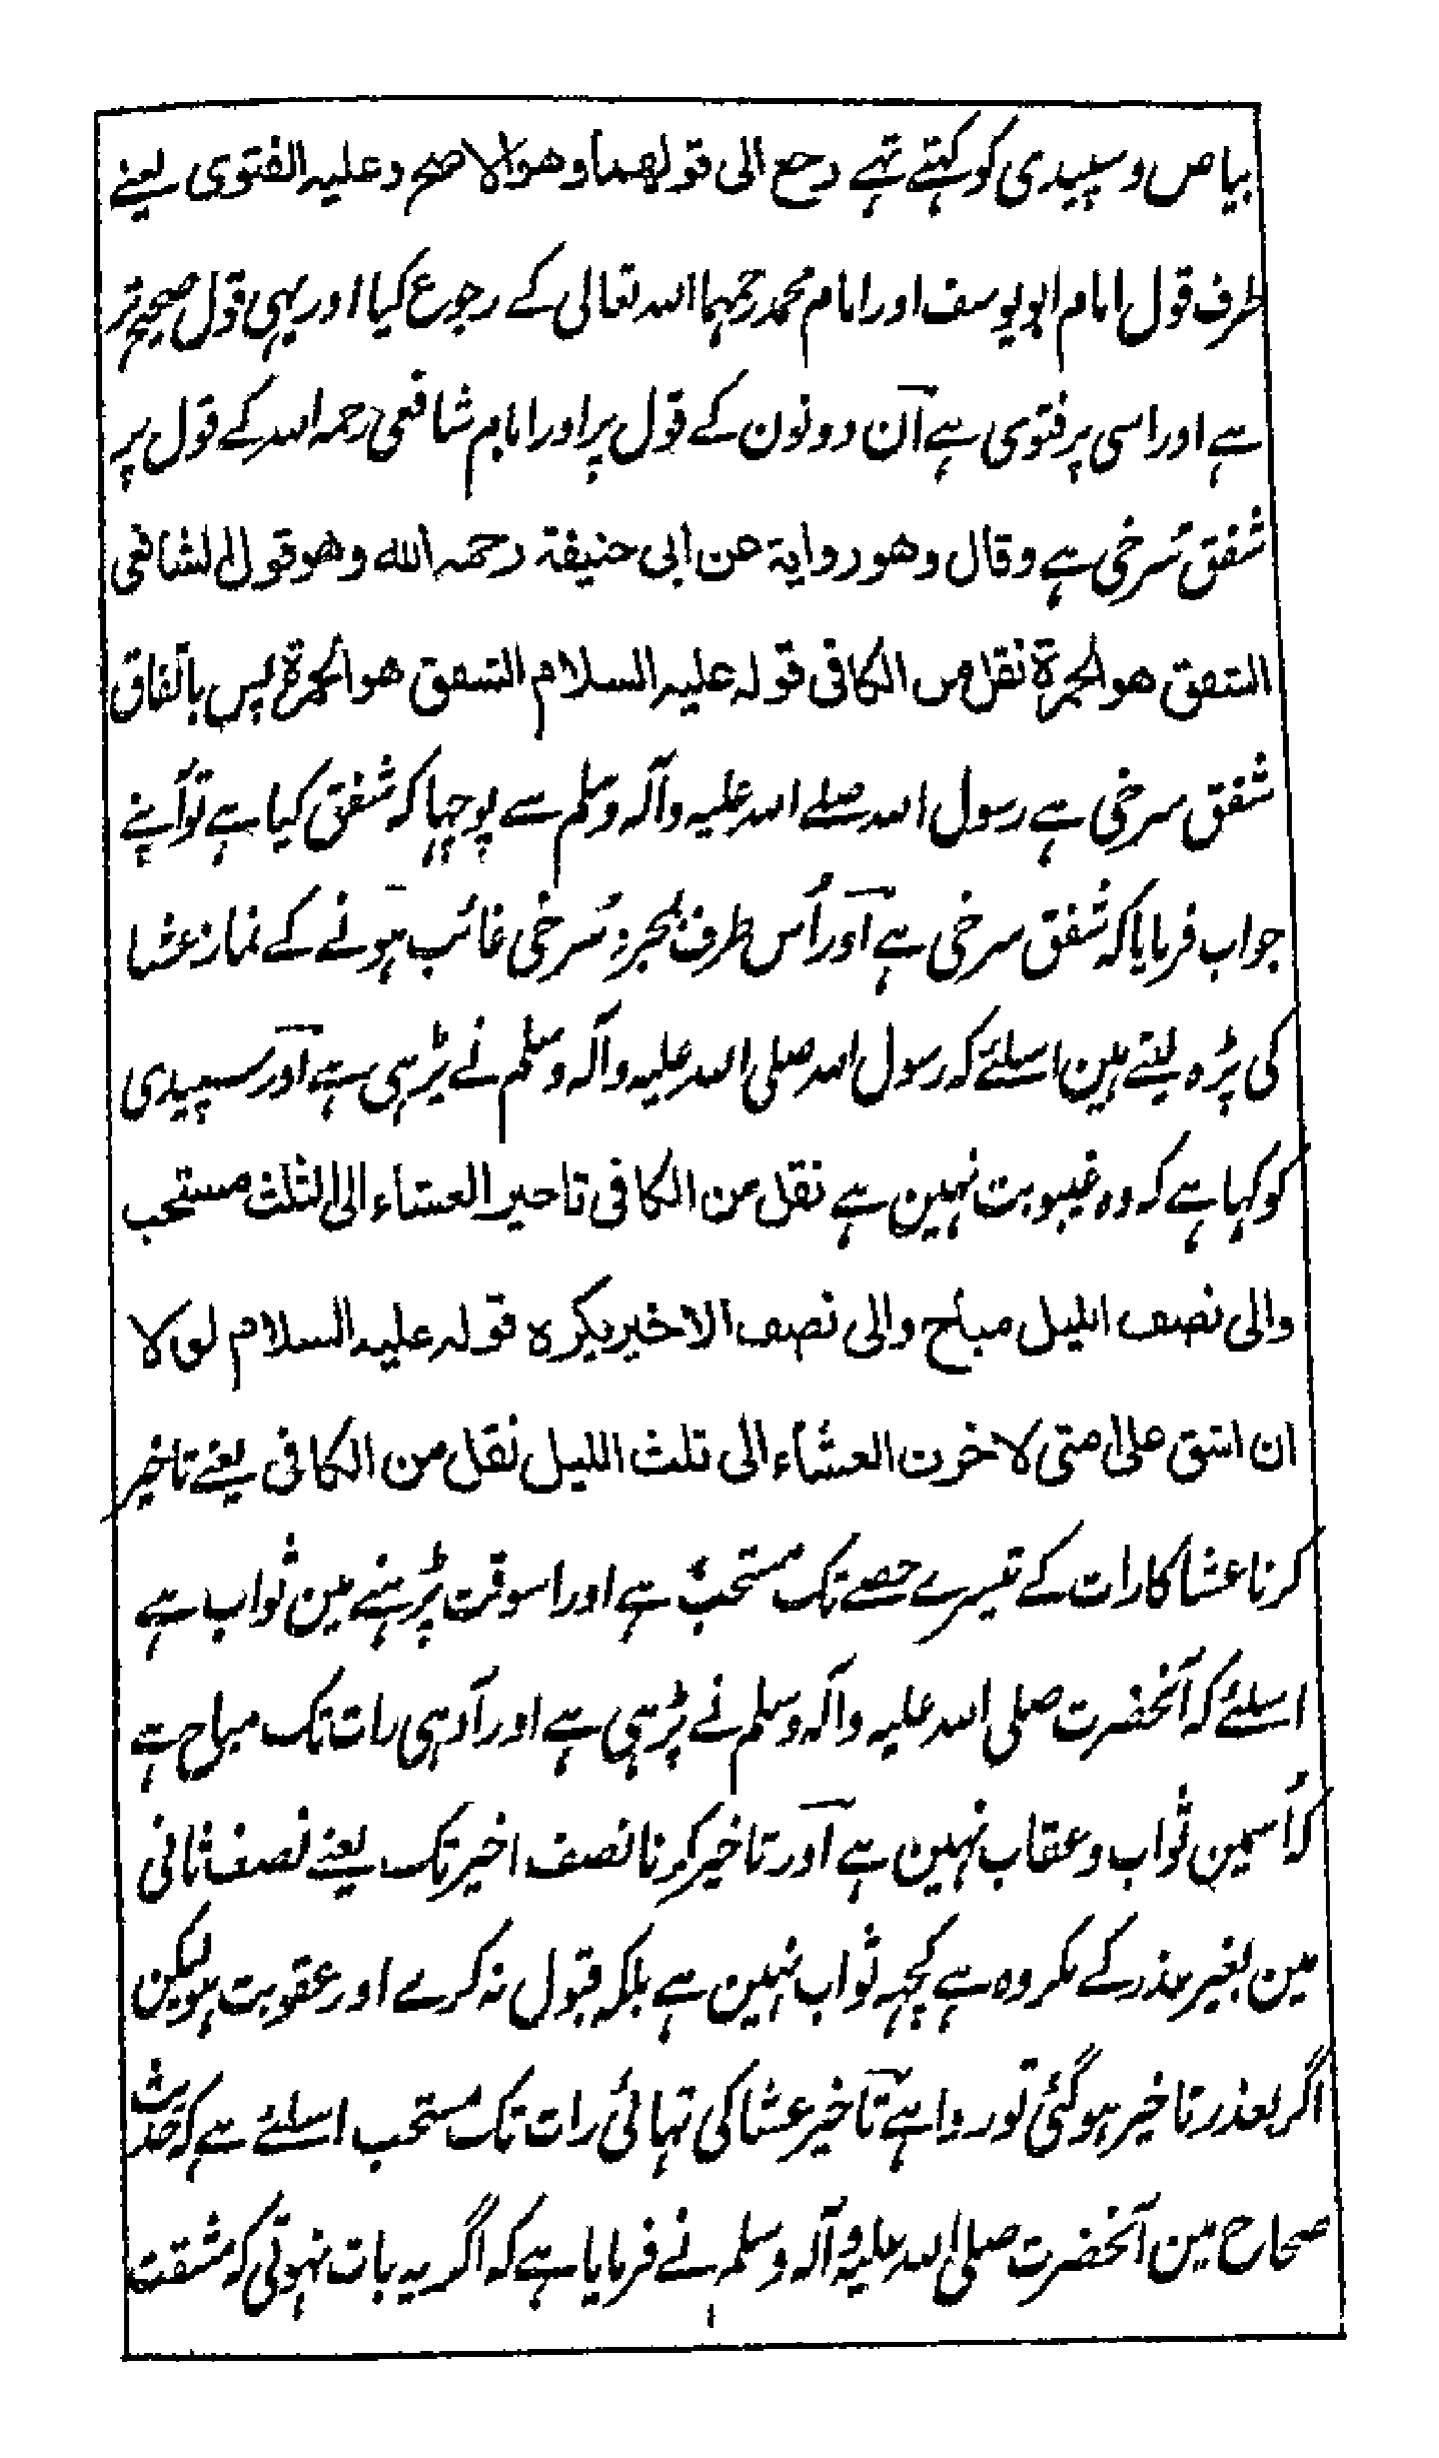 بیاض و سپیدی کو کہتے تہے رجع الی قولهما وهوالاصح وعلیہ الفتوی یعنے
طرف قول امام ابویوسف اور امام محمد رحمہما اللہ تعالی کے رجوع کیا اور یہی قول صحیح تر
ہے اور اسی پر فتوی ہے آن دونون کے قول پر اور امام شافعی رحمہ اللہ کے قول پر
شفق سُرخی ہے وقال وهو روایة عن ابی حنیفة رحمہ اللہ وهو قول الشافعی
الشفق هوالحمرة نقل من الکافی قولہ علیہ السلام الشفق هوالحمرة پس باتفاق
شفق سرخی ہے رسول اللہ صلے اللہ علیہ وآلہ وسلم سے پوچہا کہ شفق کیا ہے تو آپنے
جواب فرمایا کہ شفق سرخی ہے آور اُس طرف بمجرد سُرخی غائب ہونے کے نماز عشا
کی پڑہ لیتے ہین اسلئے کہ رسول اللہ صلی اللہ علیہ وآلہ وسلم نے پڑہی ہے آور سپیدی
کو کہا ہے کہ وہ غیبوبت نہین ہے نقل من الکافی تاخیر العشاء الی الثلث مستحب
والی نصف اللیل مباح والی نصف الاخیر یکرہ قولہ علیہ السلام لولا
ان اشق علی امتی لاخرت العشاء الی ثلث اللیل نقل من الکافی یعنے تاخیر
کرنا عشا کا رات کے تیسرے حصے تک مستحب ہے اور اسوقت پڑہنے مین ثواب ہے
اسلئے کہ آنحضرت صلی اللہ علیہ وآلہ وسلم نے پڑہی ہے اور آدہی رات تک مباح ہے
کہ اُسمین ثواب و عقاب نہین ہے آور تاخیر کرنا نصف اخیر تک یعنے نصف ثانی
مین بغیر عذر کے مکروہ ہے کچہہ ثواب نہین ہے بلکہ قبول نہ کرے اور عقوبت ہو لیکن
اگر بعذر تاخیر ہوگئی تو روا ہے تآخیر عشا کی تہائی رات تک مستحب اسلئے ہے کہ حدیث
صحاح مین آنحضرت صلی اللہ علیہ وآلہ وسلم نے فرمایا ہے کہ اگر یہ بات نہوتی کہ مشقت